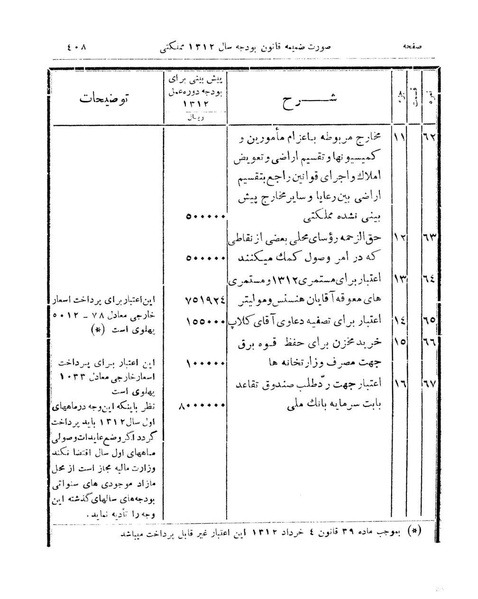 صفحه
صورت ضمیمه قانون بودجه سال ۱۳۱۲ مملکتی
۴۰۸
نمره
قسمت
جزء
شـــرح
پیش بینی برای
بودجه دوره عمل
۱۳۱۲
ریـال
توضیحات
۶۲
۱۱
مخارج مربوطه باعزام مأمورین و
کمیسیونها و تقسیم اراضی و تعویض
املاک و اجرای قوانین راجع بتقسیم
اراضی بین رعایا و سایر مخارج پیش
بینی نشده مملکتی
۵۰۰۰۰۰
۶۳
۱۲
حق الزحمه رؤسای محلی بعضی از نقاطی
که در امر وصول کمک میکنند
۵۰۰۰۰۰
۶۴
۱۳
اعتبار برای مستمری ۱۳۱۲ و مستمری
های معوقه آقایان هنسنس و مولیتر
۷۵۱۹۲۴
این اعتبار برای پرداخت اسعار
خارجی معادل ۷۸ - ۵۰۱۲
پهلوی است (*)
۶۵
۱۴
اعتبار برای تصفیه دعاوی آقای کلاپ
۱۵۵۰۰۰
۶۶
۱۵
خرید مخزن برای حفظ قوه برق
جهت مصرف وزارتخانه ها
۱۰۰۰۰۰
این اعتبار برای پرداخت
اسعار خارجی معادل ۱۰۳۳
پهلوی است
۶۷
۱۶
اعتبار جهت رد طلب صندوق تقاعد
بابت سرمایه بانک ملی
۸۰۰۰۰۰۰
نظر باینکه این وجه در ماههای
اول سال ۱۳۱۲ باید پرداخت
گردد اگر وضع عایدات وصولی
ماههای اول سال اقتضا نکند
وزارت مالیه مجاز است از محل
مازاد موجودی های سنواتی
بودجه‌های سالهای گذشته این
وجه را تأدیه نماید.
(*) بموجب ماده ۳۹ قانون ۴ خرداد ۱۳۱۲ این اعتبار غیر قابل پرداخت میباشد